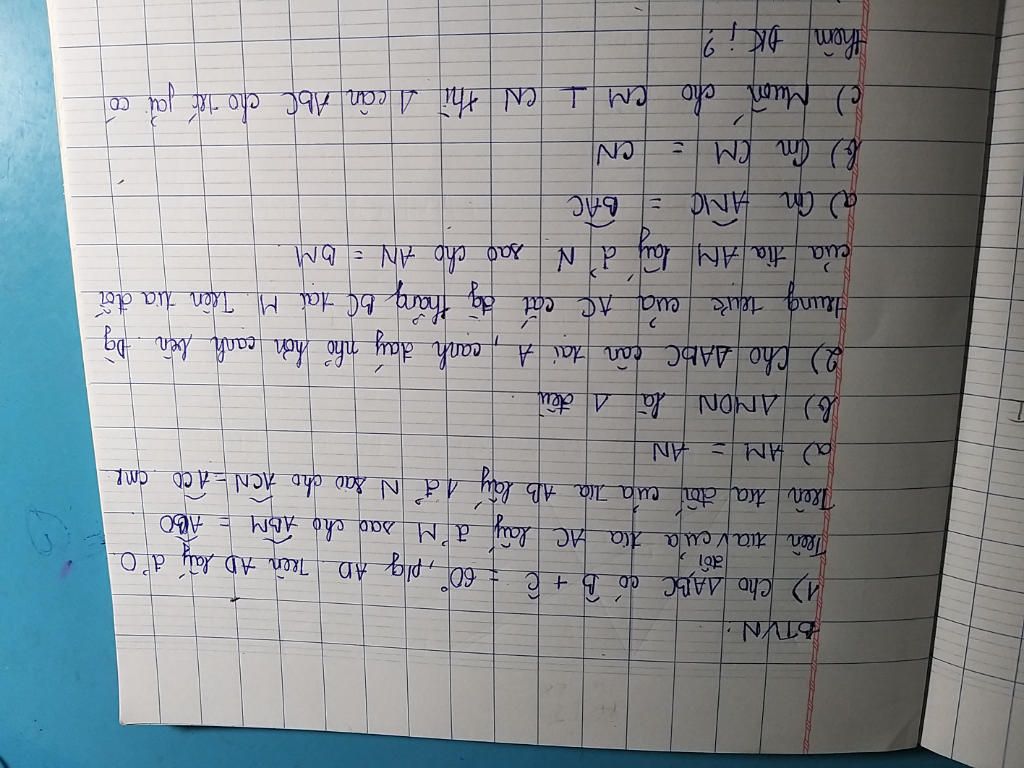 BTVN:
1) Cho ΔABC có B̂ + Ĉ = 60°, p/g AD. Trên AD lấy đ' O
đối
Trên tia của tia AC lấy đ' M sao cho ABM̂ = ABÔ
Trên tia đối của tia AB lấy 1 đ' N sao cho ACN̂ = ACÔ. cmr
a) AM = AN
b) ΔMON là Δ đều
2) Cho ΔABC cân tại A, cạnh đáy nhỏ hơn cạnh bên. Đg
trung trực của AC cắt đg thẳng BC tại M. Trên tia đối
của tia AM lấy đ' N sao cho AN = BM
a) Cm AMC = BAC
b) Cm CM = CN
c) Muốn cho CM ⊥ CN thì Δ cân ABC cho trc phải có
thêm ĐK j ?